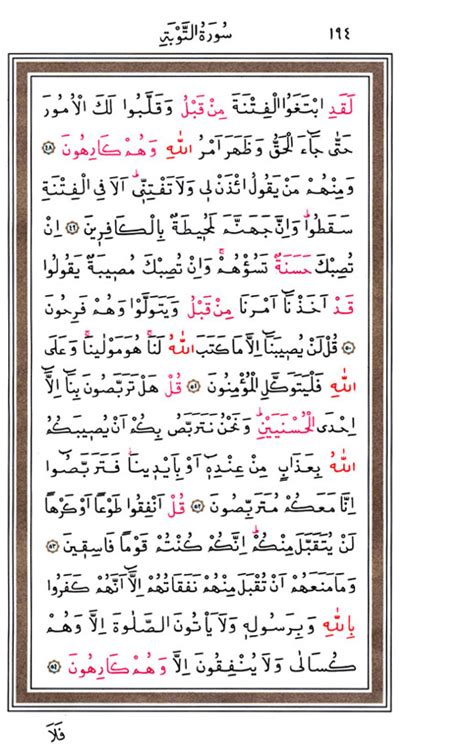 سُورَةُ التَّوْبَةِ ١٩٤
لَقَدِ ابْتَغَوُا الْفِتْنَةَ مِنْ قَبْلُ وَقَلَّبُوا لَكَ الْاُمُورَ
حَتّٰى جَٓاءَ الْحَقُّ وَظَهَرَ اَمْرُ اللّٰهِ وَهُمْ كَارِهُونَ ﴿٤٨﴾
وَمِنْهُمْ مَنْ يَقُولُ ائْذَنْ لٖى وَلَا تَفْتِنّٖىۜ اَلَا فِى الْفِتْنَةِ
سَقَطُواۜ وَاِنَّ جَهَنَّمَ لَمُحٖيطَةٌ بِالْكَافِرٖينَ ﴿٤٩﴾ اِنْ
تُصِبْكَ حَسَنَةٌ تَسُؤْهُمْۚ وَاِنْ تُصِبْكَ مُصٖيبَةٌ يَقُولُوا
قَدْ اَخَذْنَٓا اَمْرَنَا مِنْ قَبْلُ وَيَتَوَلَّوْا وَهُمْ فَرِحُونَ
﴿٥٠﴾ قُلْ لَنْ يُصٖيبَنَٓا اِلَّا مَا كَتَبَ اللّٰهُ لَنَاۚ هُوَ مَوْلٰينَاۚ وَعَلَى
اللّٰهِ فَلْيَتَوَكَّلِ الْمُؤْمِنُونَ ﴿٥١﴾ قُلْ هَلْ تَرَبَّصُونَ بِنَٓا اِلَّٓا
اِحْدَى الْحُسْنَيَيْنِۜ وَنَحْنُ نَتَرَبَّصُ بِكُمْ اَنْ يُصٖيبَكُمُ
اللّٰهُ بِعَذَابٍ مِنْ عِنْدِهٖٓ اَوْ بِاَيْدٖينَاۘ فَتَرَبَّصُٓوا
اِنَّا مَعَكُمْ مُتَرَبِّصُونَ ﴿٥٢﴾ قُلْ اَنْفِقُوا طَوْعًا اَوْ كَرْهًا
لَنْ يُتَقَبَّلَ مِنْكُمْۜ اِنَّكُمْ كُنْتُمْ قَوْمًا فَاسِقٖينَ ﴿٥٣﴾
وَمَا مَنَعَهُمْ اَنْ تُقْبَلَ مِنْهُمْ نَفَقَاتُهُمْ اِلَّٓا اَنَّهُمْ كَفَرُوا
بِاللّٰهِ وَبِرَسُولِهٖ وَلَا يَأْتُونَ الصَّلٰوةَ اِلَّا وَهُمْ
كُسَالٰى وَلَا يُنْفِقُونَ اِلَّا وَهُمْ كَارِهُونَ ﴿٥٤﴾
فَلَا